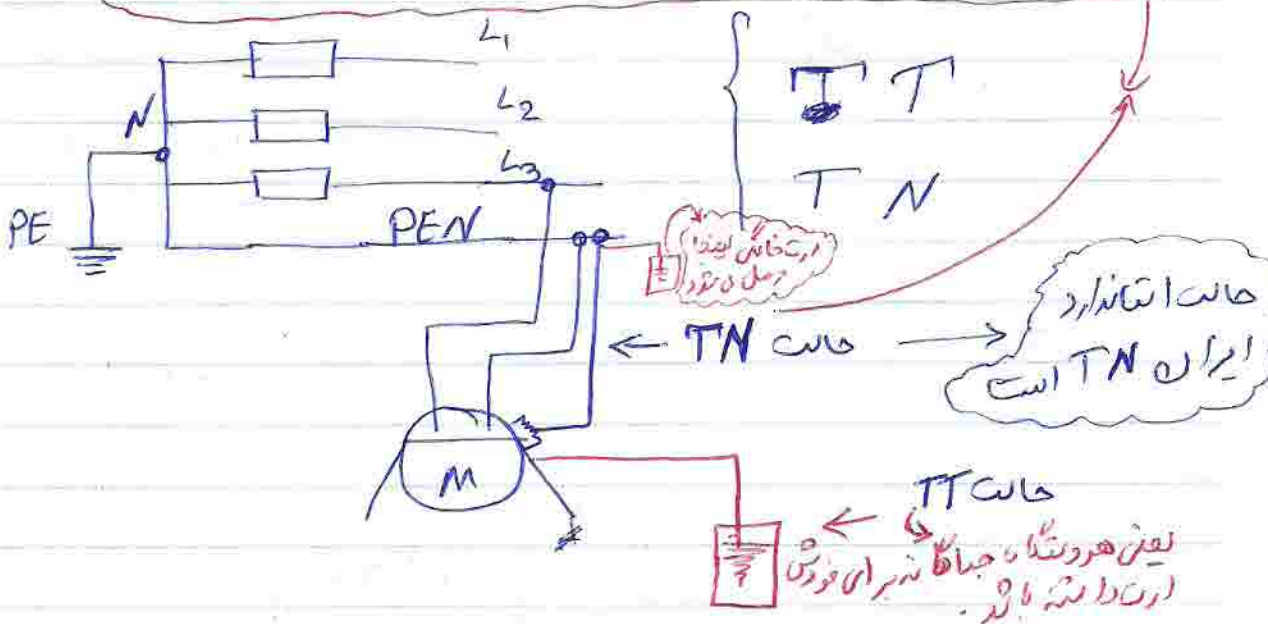 L1
N
L2
L3
PE
PEN
T T
T N
ارت خانگی اینجا
وصل می شود
حالت TN
حالت استاندارد
ایران TN است
M
حالت TT
یعنی هر دستگاه جداگانه برای خودش
ارت داشته باشد.